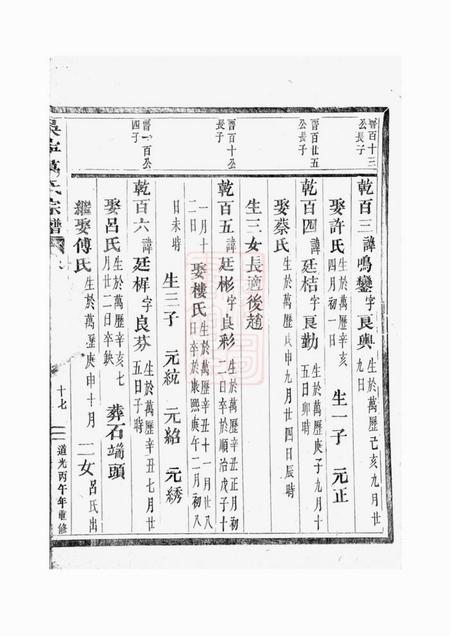 晋百十三公長子
乾百三諱鳴鑾字良輿生於萬曆己亥九月廿九日
娶許氏生於萬曆辛亥四月初一日 生一子 元正
晋百廿五公長子
乾百四諱廷桔字良勤生於萬曆庚子九月十五日卯時
娶蔡氏生於萬曆戊申九月廿四日辰時
生三女長適後趙
晋百十公長子
乾百五諱廷彬字良彩生於萬曆辛丑正月初二日卒於順治戊子十一月十二日
娶樓氏生於萬曆辛丑十一月廿八日卒於康熙庚午二月初八日未時
生三子 元統 元紹 元綉
晋一百公四子
乾百六諱廷樨字良芬生於萬曆辛丑七月廿五日子時
娶呂氏生於萬曆辛亥七月廿二日卒缺 葬石端頭
繼娶傅氏生於萬曆庚申十月 二女呂氏出
氏宗譜
十七
道光丙午年重修